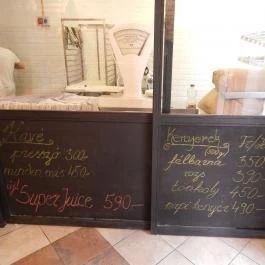 Kávé
presszó 300-
minden más 450-
új! SuperJuice 590-
Kenyerek
félbarna 350
rozs 390
tönköly 450
napi kenyér 490-